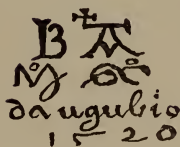 B A
M° G°
da ugubio
1520